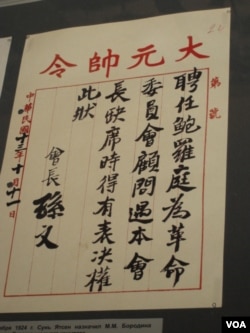 大元帥令
第 號
聘任鮑羅庭為革命
委員會顧問遇本會
長缺席時得有表決權
此狀
會長孫文
中華民國十三年十月十一日
1924 г. Сунь Ятсен назначил М.М. Бородина
VOA